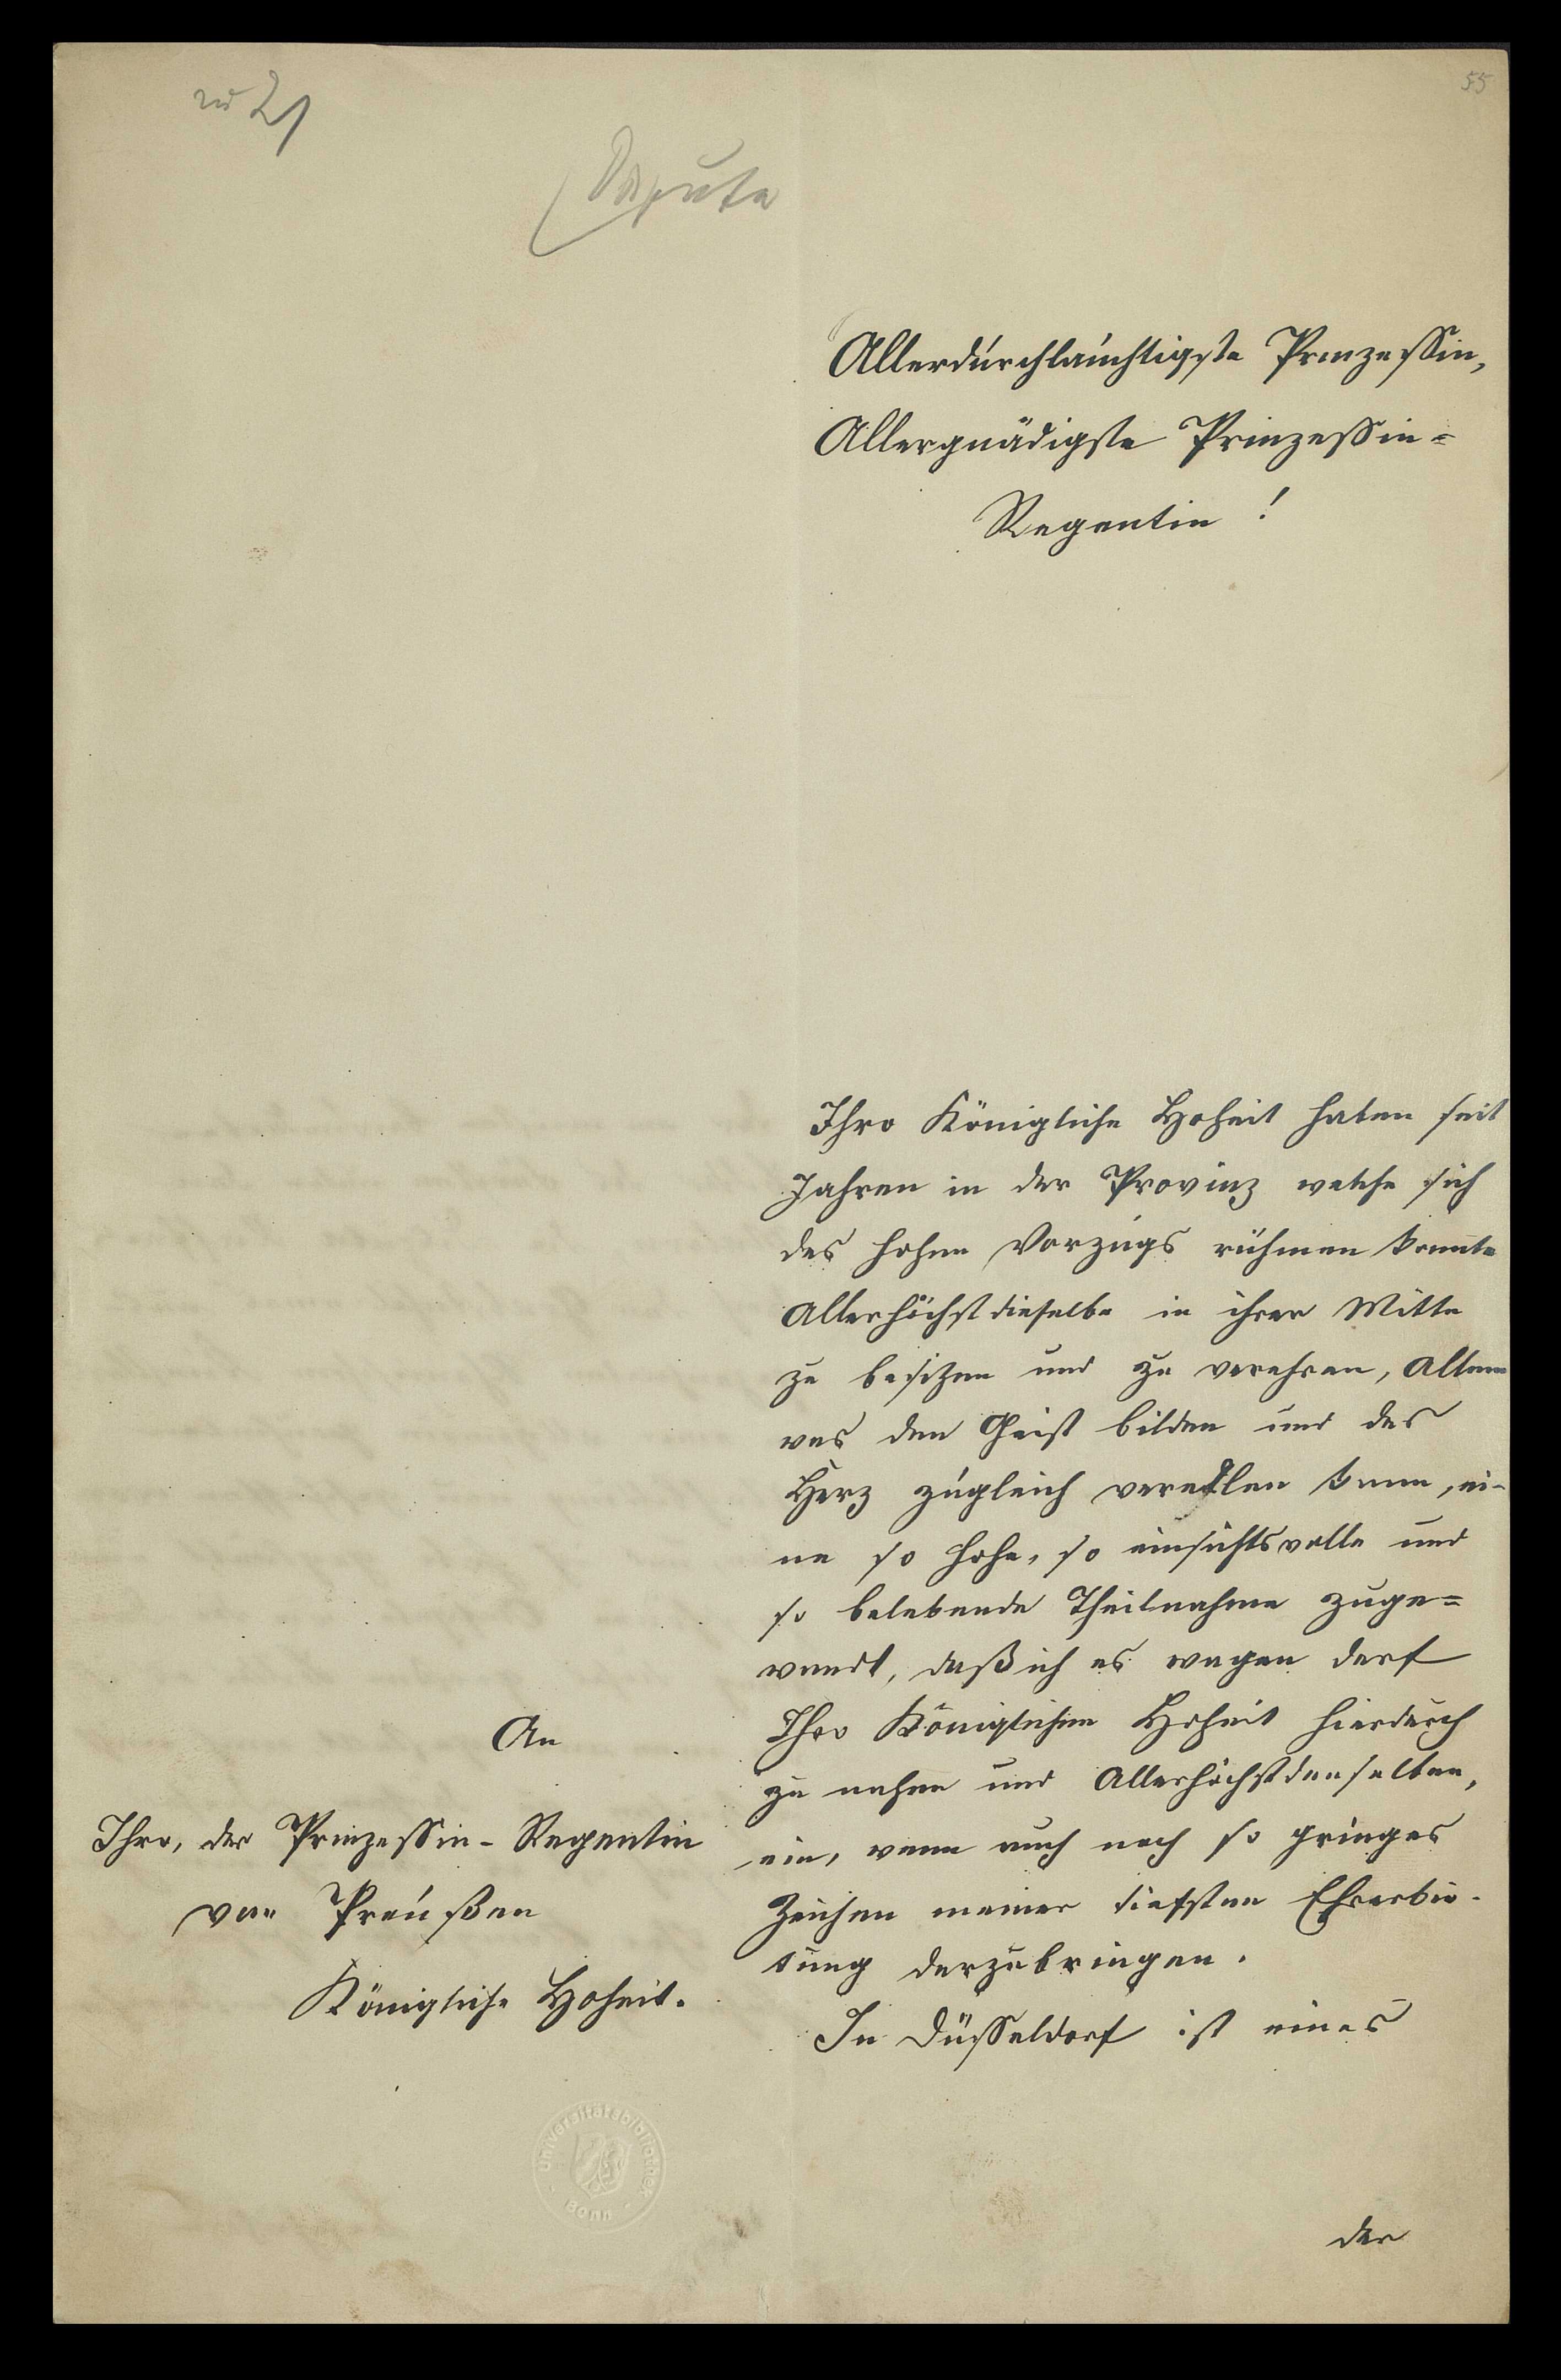 55
Allerdurchlauchtigste Prinzessin,
Allergnädigste Prinzessin=
Regentin!
Ihro Königliche Hoheit haben seit
Jahren in der Provinz welche sich
des hohen Vorzugs rühmen konnte
Allerhöchstdieselbe in ihrer Mitte
zu besitzen und zu verehren, Allem
was den Geist bilden und das
Herz zugleich veredlen kann, ei-
ne so hohe, so einsichtsvolle und
so belebende Theilnahme zuge=
wandt, daß ich es wagen darf
Ihro Königlichen Hoheit hierdurch
zu nahen und Allerhöchstdenselben,
ein, wenn auch noch so gringes
Zeichen meiner tiefsten Ehrerbie-
tung darzubringen.
In Düsseldorf ist eines
der
An
Ihro, der Prinzessin-Regentin
von Preußen
Königliche Hoheit.
Universitätsbibliothek
Bonn